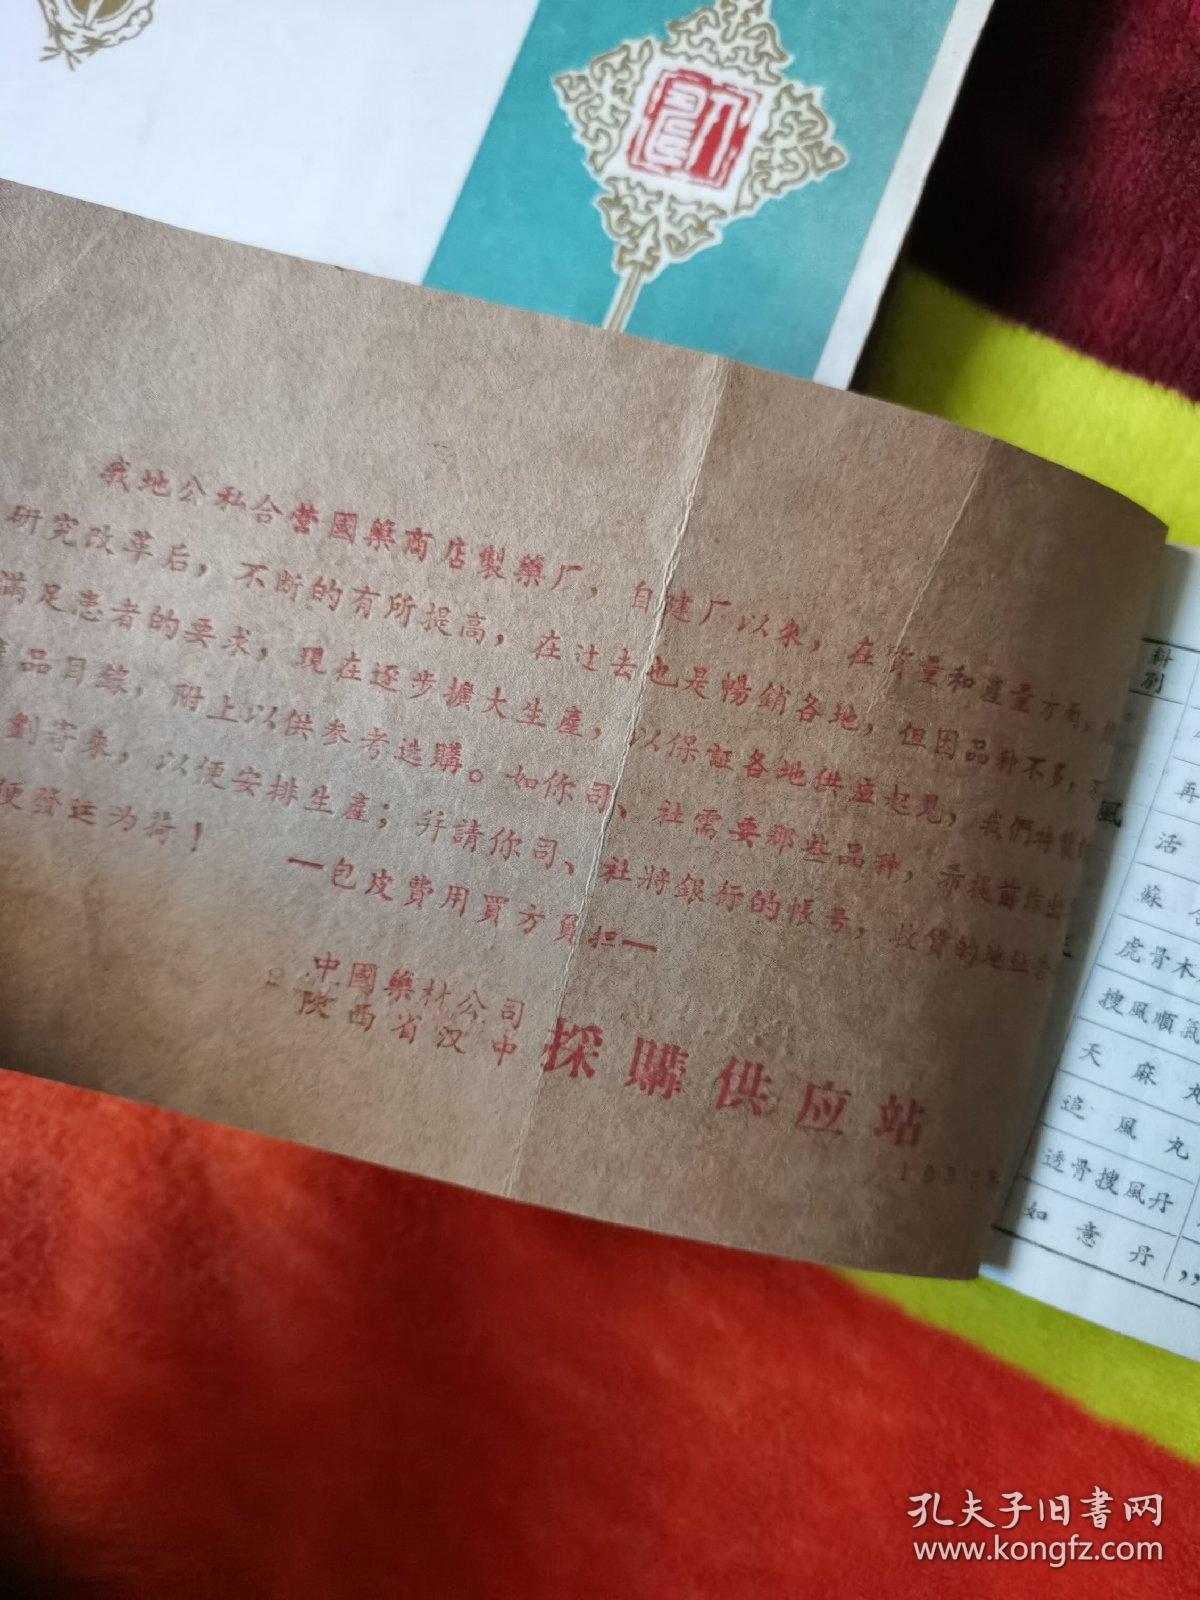 我地公私合营國藥商店製藥厂，自建厂以來，在質量和產量方面，
研究改革后，不断的有所提高，在过去也是暢銷各地，但因品种不多，
滿足患者的要求，現在逐步擴大生產，以保証各地供应起見，我們特
產品目綠，附上以供参考选購。如你司、社需要那些品种，希提前作出
劃寄來，以便安排生產；并請你司、社將銀行的帳号，收貨的地址
便發运为荷！
一包皮費用買方負担一
中國藥材公司
陕西省汉中
採購供应站
1957年
科别
風
再
活
蘇合
虎骨木
搜風順氣
天麻丸
追風丸
透骨搜風丹
如意丹
孔夫子旧书网
www.kongfz.com